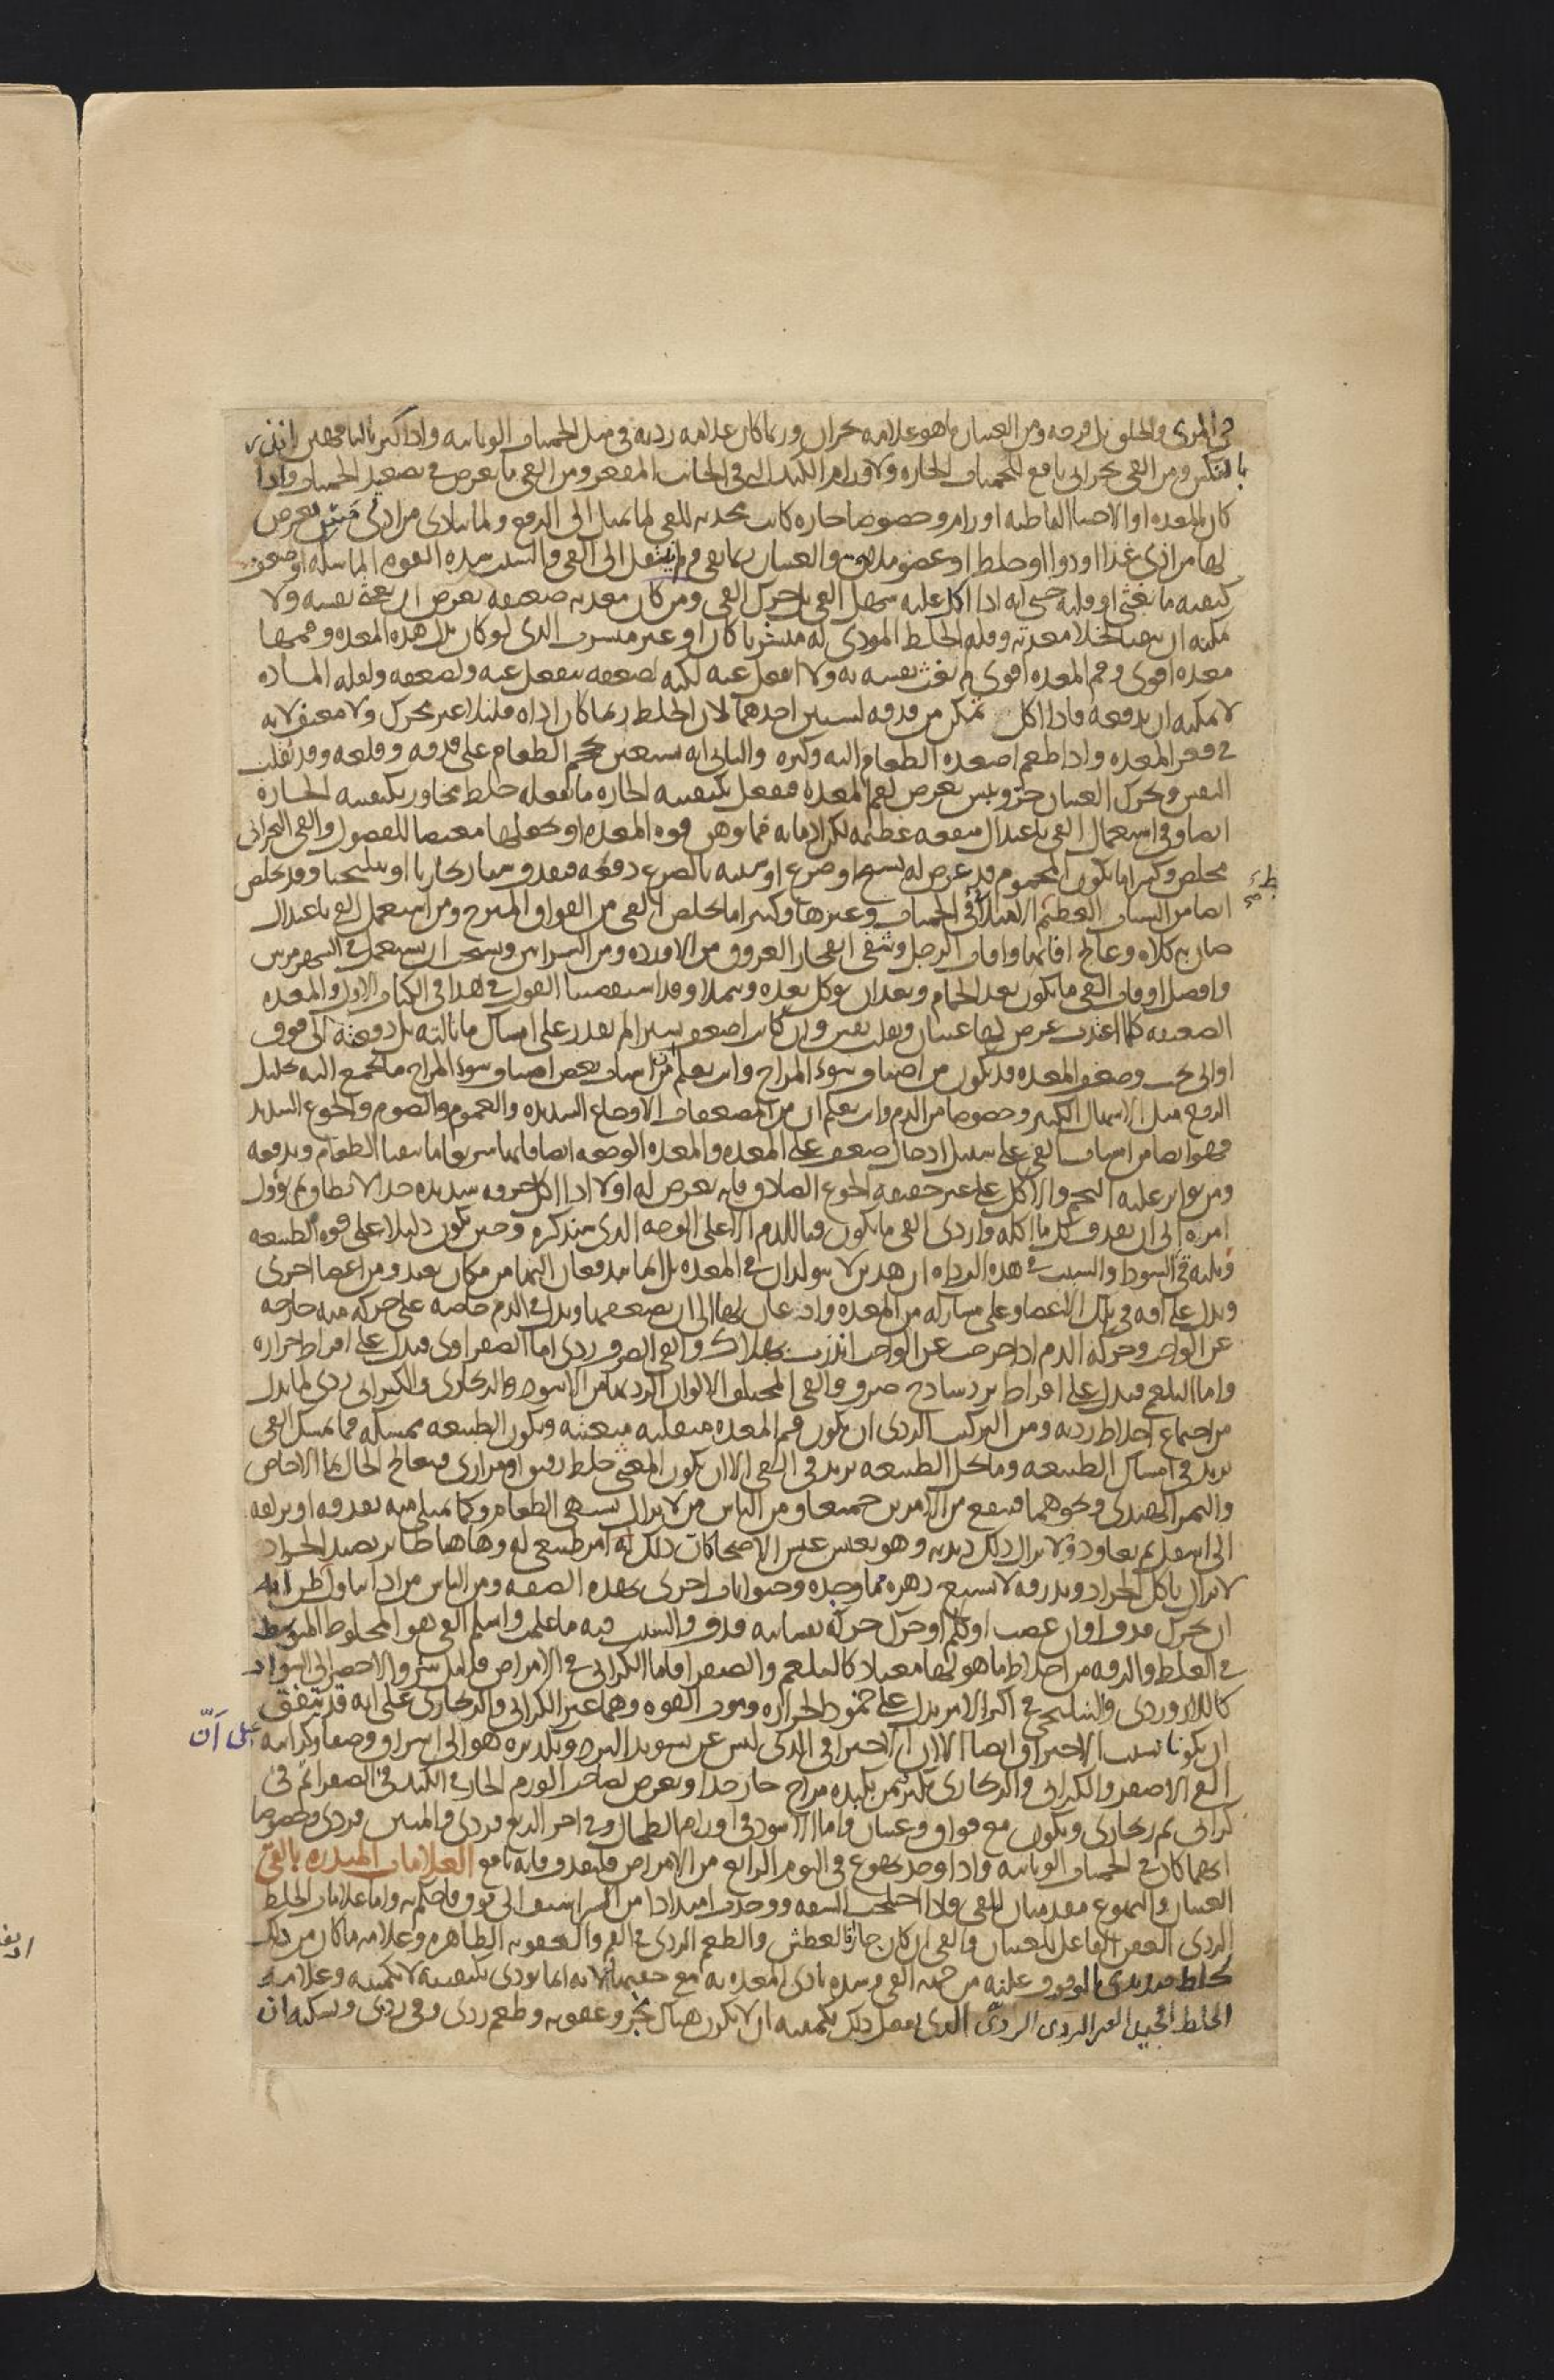 في المرى والحلق بل قرحه ومن الغثيان ما هو علامه بحران وربما كان علامه رديه في مثل الحميات الوبائيه واذا كثر بالناقهين انذر
بالنكس ومن القي بحراني نافع للحميات الحاره ولاورام الكبد التي في الجانب المقعر ومن القي ما يعرض في تصعيد الحميات واذا
كان للمعده او الاحشا الباطنه اورام وخصوصا حاره كانت محدثه للقي لما تميل الى الدفع ولما تتاذى من ادنى مس يعرض
لها من ادنى غذا او دوا او خلط او عضو ملاق والغثيان ربما بقي ولم ينتقل الى القي والسبب فيه شده القوه الماسكه او ضعف
كيفيه ما يغثي او قلته حتى انه اذا اكل عليه سهل القي بل حرك القي ومن كان معدته ضعيفه يعرض ان تغثى نفسه ولا
يمكنه ان يتقيا لخلا معدته وقله الخلط الموذي له متشربا كان او غير متشرب الذي لو كان بدل هذه المعده وفمها
معده اقوى وفم المعده اقوى لم تغث نفسه به ولا انفعل عنه لكنه لضعفه ينفعل عنه ولضعفه ولقله الماده
لا يمكنه ان يدفعه فاذا اكل تمكن من قذفه لسببين احدهما لان الخلط ربما كان اذاه قليلا غير متحرك ولا معنف لانه
في قعر المعده واذا طعم اصعده الطعام اليه وكثره والثاني انه يستعين بحجم الطعام على قذفه وقلعه وقد تقلب
النفس وتحرك الغثيان حر ويبس يعرض لفم المعده فيفعل بكيفيته الحاره ما يفعله خلط مجاور بكيفيته الحاره
ايضا وفي استعمال القي باعتدال منفعه عظيمه لكن ادمانه مما يوهن قوه المعده او يجعلها مغيضا للفضول والقي البحراني
مخلص وكثيرا ما يكون المحموم قد عرض له تشنج او صرع او شبيه بالصرع دفعه فيقذف شيا زنجاريا او نيلنجيا وقد يخلص
ايضا من السبات العظيم الامتلائي في الحميات وغيرها وكثيرا ما يخلص القي من الفواق المبرح ومن استعمل القي باعتدال
صان به كلاه وعالج افاتها وافات الرجل وشفى انفجار العروق من الاورده ومن الشرايين ويستحب ان يستعمل في الشهر مرتين
وافضل اوقات القي ما يكون بعد الحمام وبعد ان يوكل بعده ويتملا وقد استقصينا القول في هذا في الكتاب الاول والمعده
الضعيفه كلما اغتذت عرض لها غثيان وتقلب نفس وان كانت اضعف يسيرا لم تقدر على امساك ما نالته بل دفعته الى فوق
او الى تحت وضعف المعده قد يكون من اصناف سوء المزاج وانت تعلم ان من اسباب بعض اصناف سوء المزاج ما يجمع اليه تحليل
الروح مثل الاسهال الكثير وخصوصا من الدم وانت تعلم ان من المضعفات الاوجاع الشديده والغموم والصوم والجوع الشديد
فهو ايضا من اسباب القي على سبيل ادخال ضعف على المعده والمعده الوجعه ايضا فانها سريعا ما تتقيا الطعام وتدفعه
ومن يواتر عليه التخم والاكل على غير حقيقه الجوع الصادق فانه يعرض له اولا اذا اكل حرقه شديده جدا لا تطاق ثم يؤول
امره الى ان يقذف كل ما اكله واردى القي ما يكون قيا للدم الا على الوجه الذي سنذكره وحين يكون دليلا على قوه الطبيعه
ويليه قي السودا والسبب في هذه الرداه ان هذين لا يتولدان في المعده بل انما يندفعان اليها من مكان بعيد ومن اعضا اخرى
ويدل على افه في تلك الاعضا وعلى مشاركه من المعده واذعان لها الى ان يضعفها ويدل في الدم خاصه على حركه منه خارجه
عن الواجب وحركه الدم اذا خرجت عن الواجب انذرت بهلاك والقي الصرف ردي اما الصفراوي فيدل على افراط حراره
واما البلغم فيدل على افراط برد ساذج صرف والقي المختلف الالوان الردي مثل الاسود والزنجاري والكراثي ردي لما يدل
من اجتماع اخلاط رديه ومن التركيب الردي ان يكون فم المعده متقلبه متغثيه ويكون الطبيعه ممسكه فما يمسك القي
يزيد في امساك الطبيعه وما يحل الطبيعه يزيد في القي الا ان يكون المغثي خلط رقيق او مراري فيعالج الحال بما الاجاص
والتمر الهندي ونحوهما فينفع من الامرين جميعا ومن الناس من لا يزال يشتهي الطعام وكما يمتلي منه يقذفه او يزلقه
الى اسفل ثم يعاود ولا يزال ذلك ديدنه وهو يعيش عيش الاصحا كان ذلك له امر طبيعي له وهاهنا طائر يصيد الجراد
لا يزال ياكل الجراد ويذرقه لا يشبع دهره مما وجده وحيوانات اخرى بهذه الصفه ومن الناس من اذا تناول ظن انه
ان تحرك قذف او ان غضب او كلم او حرك حركه نفسانيه قذف والسبب فيه ما علمت واسلم القي هو المخلوط المتوسط
في الغلظ والرقه من اخلاط ما هو لها معتاد كالبلغم والصفرا فاما الكراثي في الامراض فدليل شر والاخضر الى السواد
كاللازوردي والنيلنجي في اكثر الامر يدل على خمود الحراره وموت القوه وهما غير الكراثي والزنجاري على انه قد يتفق
على ان
ان يكونا بسبب الاحتراق ايضا الا ان الاحتراقي الذي ليس عن تسويد البرد وتكديره هو الى اشراق وصفا وكراثيه
القي الاصفر والكراثي والزنجاري يكثر بمن بكبده مزاج حار جدا ويعرض لصاحب الورم الحار في الكبد قي الصفرا ثم قي
كراثي ثم زنجاري ويكون مع فواق وغثيان واما الاسود في اورام الطحال وفي اخر الربع فردي والمنتن فردي وخصوصا
ايهما كان في الحميات الوبائيه واذا وجد تهوع في اليوم الرابع من الامراض فليقذف فانه نافع العلامات المنذره بالقي
الغثيان والتهوع مقدمتان للقي واذا اختلجت الشفه ووجدت امتدادا من الشراسيف الى فوق فاحكم به واما علامات الخلط
الردي العفن الفاعل للغثيان والقي ان كان حارا فالعطش والطعم الردي في الفم والعفونه الظاهره وعلامه ما كان من ذلك
بخلط صديدي الوقوف عليه من جهه القي وشده تاذي المعده به مع خفتها لانه انما يوذي بكيفيته لا بكميته وعلامه
الخلط الجيد الغير الردي الردي الذي يفعل ذلك بكميته ان لا يكون هناك بخر وعفونه وطعم ردي وقي ردي ويسكنه ان